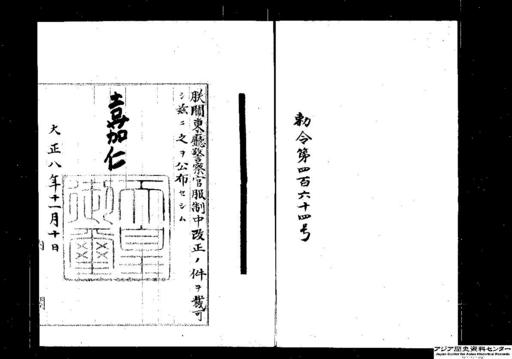 勅令第四百六十四号
朕關東廳警察官服制中改正ノ件ヲ裁可
シ茲ニ之ヲ公布セシム
嘉仁
天皇御璽
大正八年十一月十日
アジア歴史資料センター
Japan Center for Asian Historical Records